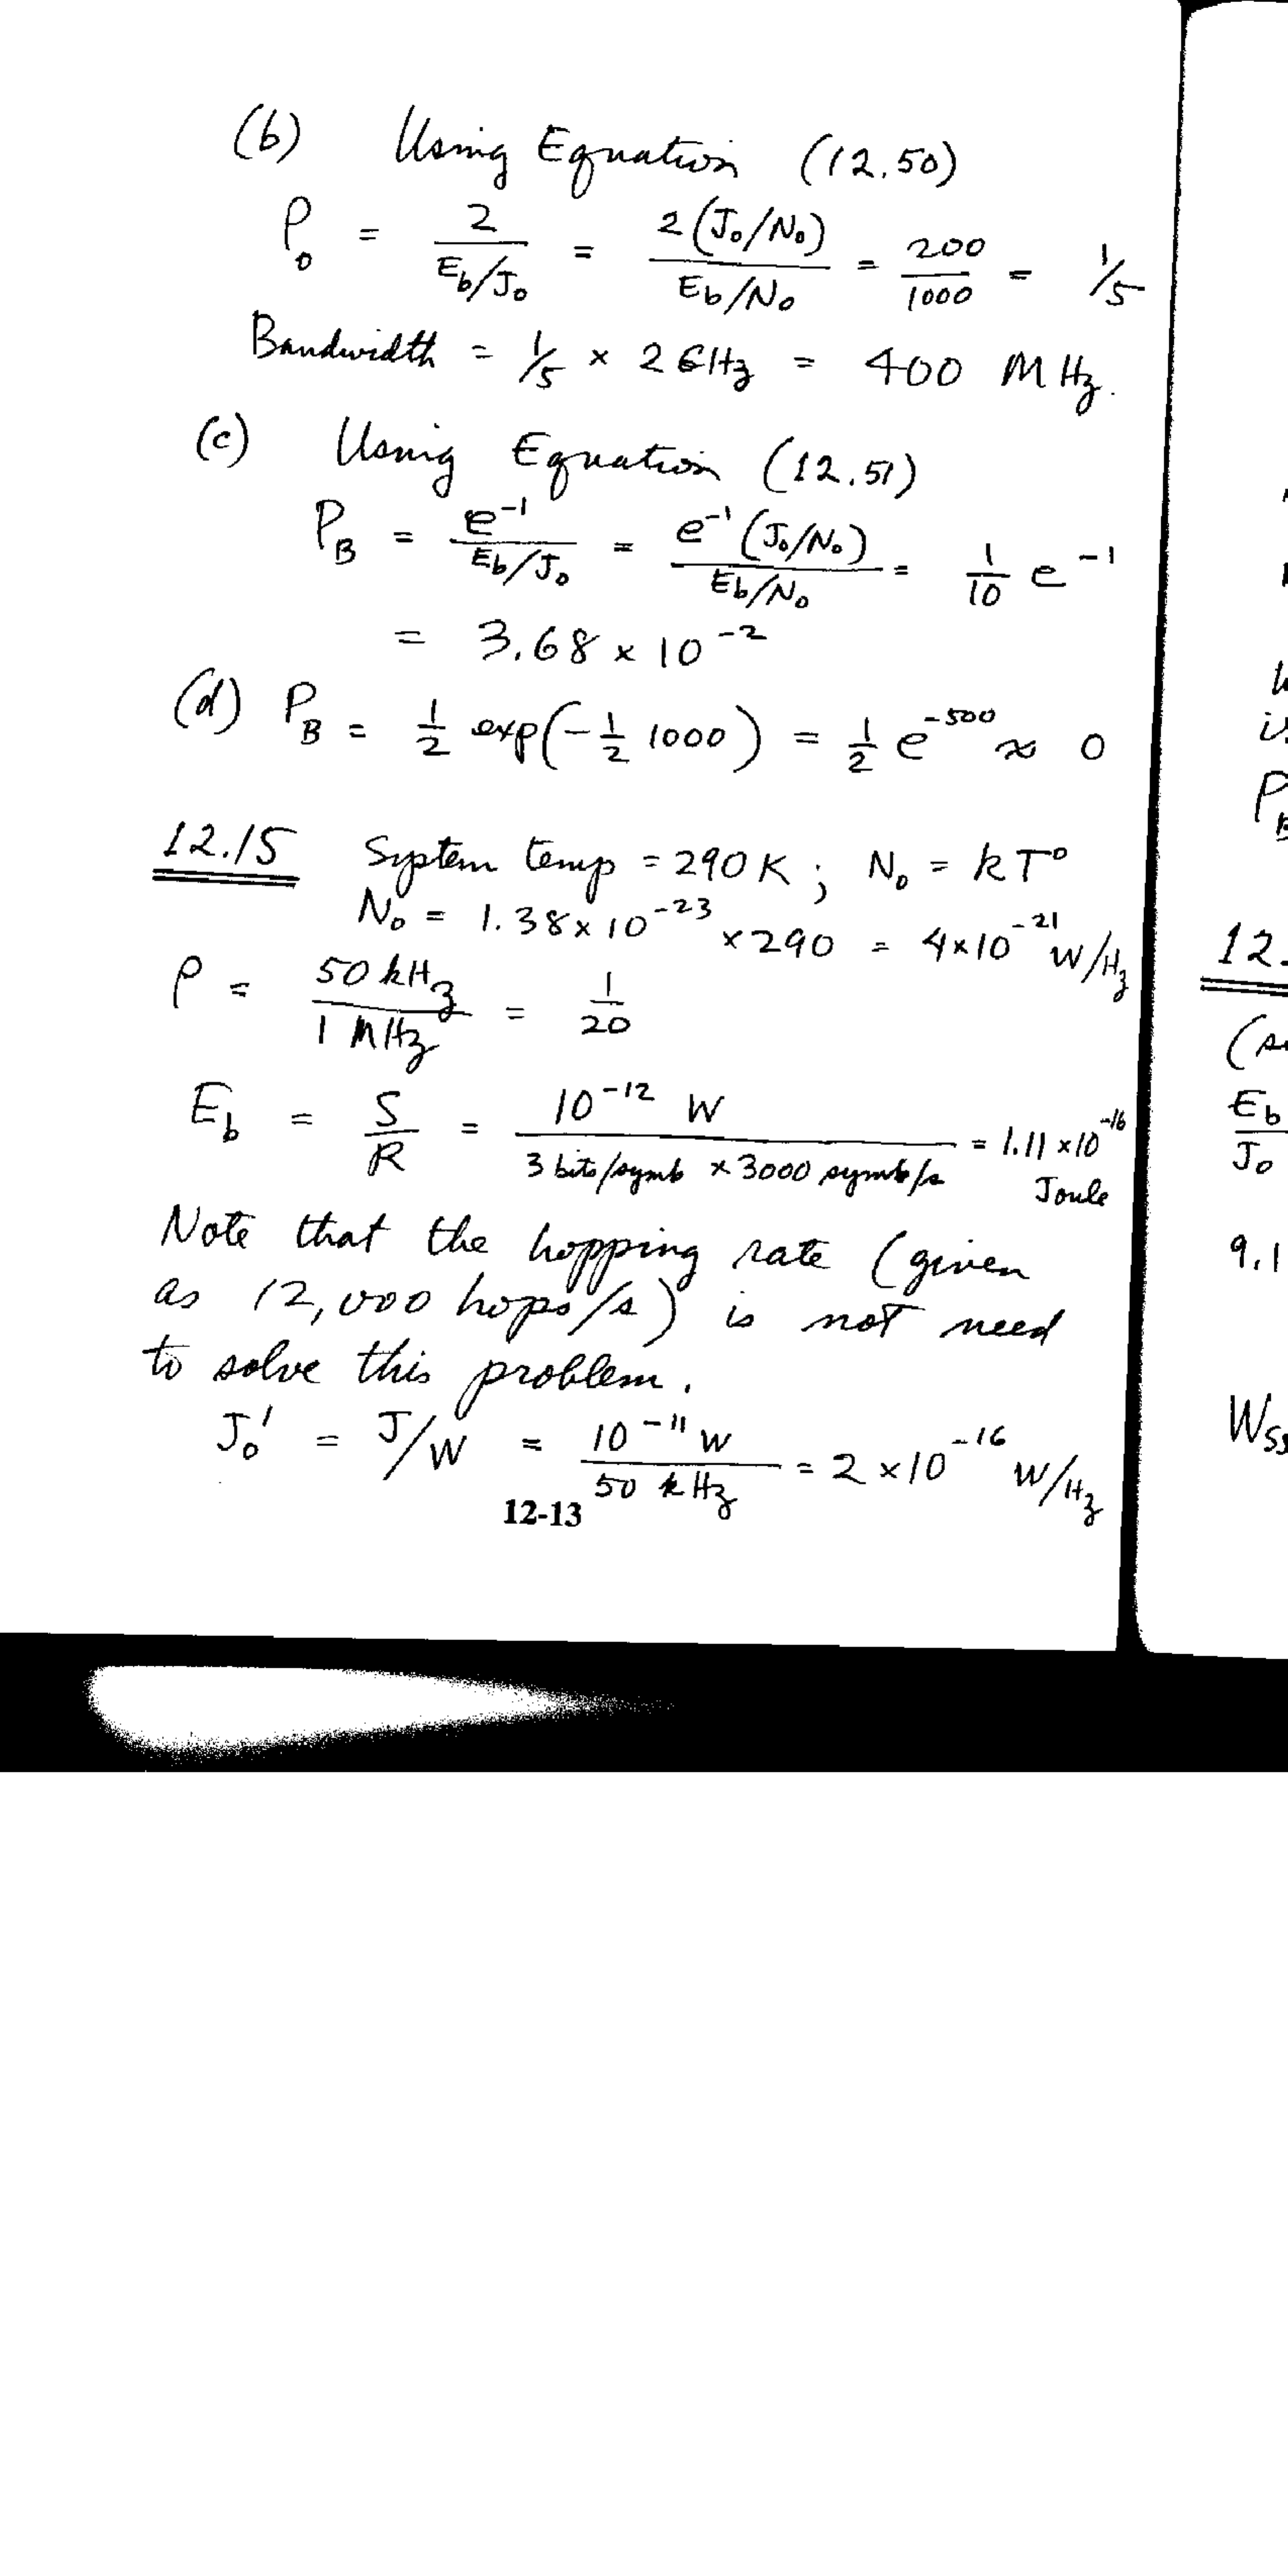 (b) Using Equation (12.50)
ρ₀ = 2 / (E_b/J₀) = 2(J₀/N₀) / (E_b/N₀) = 200/1000 = 1/5
Bandwidth = 1/5 × 2 GHz = 400 MHz.
(c) Using Equation (12.51)
P_B = e⁻¹ / (E_b/J₀) = e⁻¹(J₀/N₀) / (E_b/N₀) = 1/10 e⁻¹
= 3.68 × 10⁻²
(d) P_B = 1/2 exp(-1/2 1000) = 1/2 e⁻⁵⁰⁰ ≈ 0
12.15 System temp = 290 K ; N₀ = kT°
N₀ = 1.38 × 10⁻²³ × 290 = 4×10⁻²¹ W/Hz
ρ = 50 kHz / 1 MHz = 1/20
E_b = S/R = 10⁻¹² W / (3 bits/symb × 3000 symb/s) = 1.11 × 10⁻¹⁶ Joule
Note that the hopping rate (given
as 12,000 hops/s) is not need
to solve this problem.
J₀' = J/W = 10⁻¹¹ W / 50 kHz = 2 × 10⁻¹⁶ W/Hz
12-13
12.
E_b
J₀
9.1